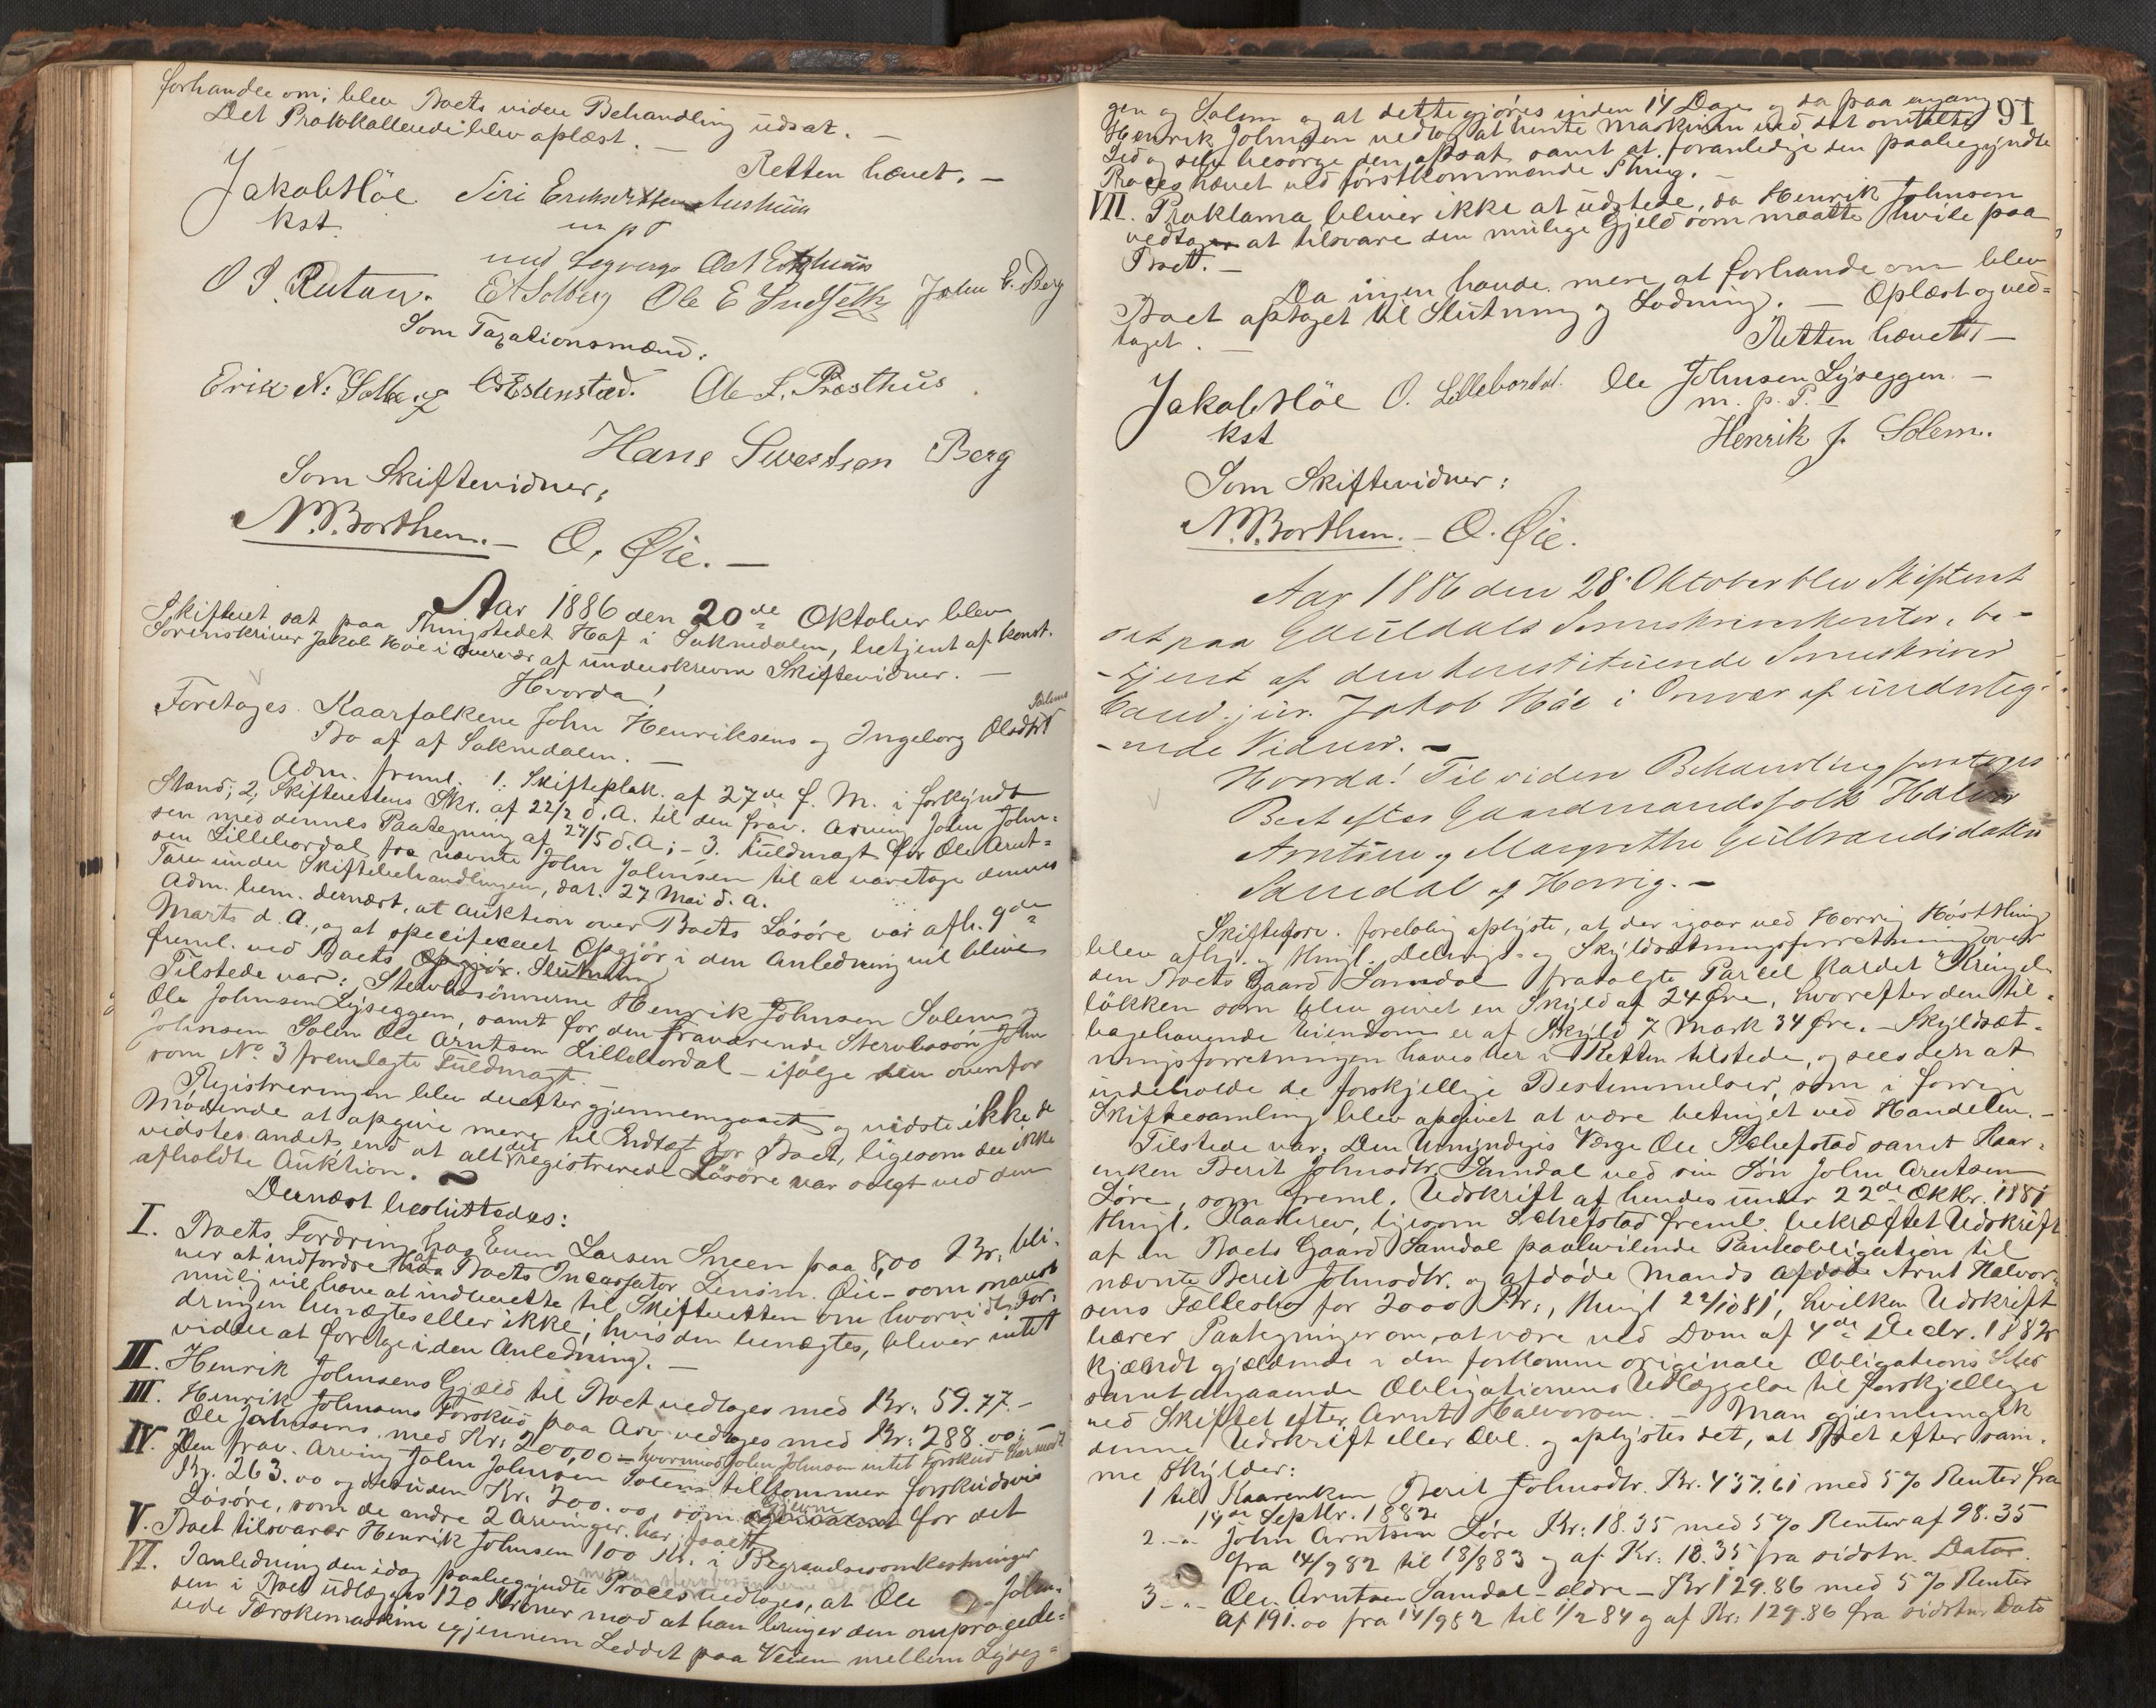 forhandle om; blev Boets videre Behandling udsat. —
Det Prokollerede blev oplæst. —
Retten hævet. —
Jakob Höe Siri Eriksdatter Aushuus
kst. m p P
med Lagværge
O J Rutau. E A Solberg Ole E John E. Berg
Som Taxationsmænd.
Erik N: Solberg O Estenstad. Ole L. Præsthus
Hans Berg
Som Skiftevidner;
N. Borthen. — O. Øie. —
Aar 1886 den 20de Oktober blev
Skifteret sat paa Thingstedet Hof i Soknedalen, betjent af konst.
Sorenskriver Jakob Höe i Overvær af underskrevne Skiftevidner. —
Hvorda!
Foretoges Kaarfolkene John Henriksens og Ingeborg Olsdtr Solems
Bo af af Soknedalen. —
Adm. freml. 1. Skifteplak. af 27de f. M. i forkyndt
Stand; 2, Skifterettens Skr. af 22/2 d. A. til den frav. Arving John John-
sen med dennes Paategning af 27/5 d. A; — 3. Fuldmagt for Ole Arnt-
sen Lillebordal fra nævnte John Johnsen til at varetage dennes
Tarv under Skiftebehandlingen, dat. 27 Mai d. A.
Adm. bem. dernæst, at Auktion over Boets Lösöre var afh. 9de
Marts d. A., og at specificeret Opgjör i den Anledning vil blive
freml. ved Boets Opgjör. Slutning
Tilstede var: Stervbosönnerne Henrik Johnsen Solem og
Ole Johnsen Lyseggen, samt for den fraværende Stervbosön John
Johnsen Solem Ole Arntsen Lillebordal — ifölge den ovenfor
som No 3 fremlagte Fuldmagt. —
Registreringen blev derefter gjennemgaaet og vidste ikke de
Mödende at opgive mere til Indtægt for Boet, ligesom der ikke
vidstes andet, end at alt det registrerede Lösöre var solgt ved den
afholdte Auktion.
Dernæst besluttedes:
I. Boets Fordring hos Even Larsen Sneen paa 8,00 Kr. bli-
ver at indfordre af Boets Incassator Lensm. Øie — som snarest
mulig vil have at indberette til Skifteretten om hvorvidt For-
dringen benægtes eller ikke; hvis den benægtes, bliver intet
videre at foretage i den Anledning. —
II. Henrik Johnsens Gjæld til Boet vedtages med Kr. 59.77. —
III. Henrik Johnsens Forskud paa Arv vedtages med Kr: 288.00; —
Ole Johnsens med Kr: 200,00 — hvorimod John Johnsen intet Forskud har modt
IV. Den frav. Arving John Johnsen Solem tilkommer forskudsvis
Kr. 263.00 og desuden Kr. 200.00, som for det
Lösöre, som de andre 2 Arvinger har faaet
V. Boet tilsvarer Henrik Johnsen 100 Kr. i Begravelsesomkostninger
VI. I Anledning den idag paabegyndte Proces mellem Stervbosönnerne vedtages, at Ole John-
sen i Boet udlægges 120 Kroner mod at han bringer den ompragede-
rede Tærskemaskine igjennem Leddet paa Veien mellem Lyseg-
91
gen og Solem og at dette gjöres inden 14 Dage og da paa engang
Henrik Johnsen vedtog at hente Maskinen ved det omtalte
Led og selv besörge den afsat samt at foranledige den paabegyndte
Proces hævet ved förstkommende Thing. —
VII. Proklama bliver ikke at udstede, da Henrik Johnsen
vedtager at tilsvare den mulige Gjeld som maatte hvile paa
Boet. —
Da ingen havde mere at forhandle om blev
Boet optaget til Slutning og Lodning. — Oplæst og ved-
taget. — Retten hævet. —
Jakob Höe O. Lillebordal. Ole Johnsen Lyseggen. —
kst m. p. P.
Henrik J. Solem.
Som Skiftevidner:
N. Borthen. — O. Øie.
Aar 1886 den 28. Oktober blev Skifteret
sat paa Gauldals Sorenskriverkontor, be-
-tjent af den konstituerede Sorenskriver
Cand. jur. Jakob Höe i Overvær af underteg-
-nede Vidner. —
Hvorda! Til videre Behandling foretoges
Boet efter Gaardmandsfolk Halvor
Arntsen og Margrethe Gulbrandsdatter
Samdal af Horrig. —
Skifteforv. foreløbig oplyste, at der igaar ved Horrig Höstthing
blev afhj. og thingl. Delings- og Skyldsætningsforretning over
den Boets Gaard Samdal frasolgte Parcel kaldet Kringel-
lökken som blev givet en Skyld af 24 Øre, hvorefter den til-
bagehavende Eiendom er af Skyld 7 Mark 34 Øre. — Skyldsæt-
ningsforretningen haves her i Retten tilstede, og sees den at
indeholde de forskjellige Bestemmelser, som i forrige
Skiftesamling blev opgivet at være betinget ved Handelen. —
Tilstede var. Den Umyndiges Værge Ole Schefstad samt Kaar-
enken Berit Johnsdtr. Samdal ved sin Sön John Arntsen
Löre, som freml. Udskrift af hendes under 22de Oktbr. 1881
thingl. Kaarbrev, ligesom Schefstad freml. bekræftet Udskrift
af en Boets Gaard Samdal paahvilende Panteobligation til
nævnte Berit Johnsdtr. og afdöde Mands afdöde Arnt Halvor-
sens Fællesbo for 2000 Kr., thingl 22/10 81, hvilken Udskrift
bærer Paategninger om at være ved Dom af 4de Decbr. 1882
kjændt gjældende i den forkomne originale Obligations Sted
samt angaaende Obligationens Udlæggelse til forskjellige
ved Skiftet efter Arnt Halvorsen. — Man gjennemgik
denne Udskrift eller Obl. og oplystes det, at Boet efter sam-
me skylder:
1 til Kaarenken Berit Johnsdtr. Kr. 437.61 med 5 % Renter fra
14de Septbr. 1882
2 — " — John Arntsen Löre Kr: 18.35 med 5 % Renter af 98.35
fra 14/9 82 til 18/8 83 og af Kr: 18.35 fra sidstn. Dato.
3 — " — Ole Arntsen Samdal — ældre — Kr 129.86 med 5 % Renter
af 191.00 fra 14/9 82 til 1/2 84 og af Kr: 129.86 fra sidstn. Dato